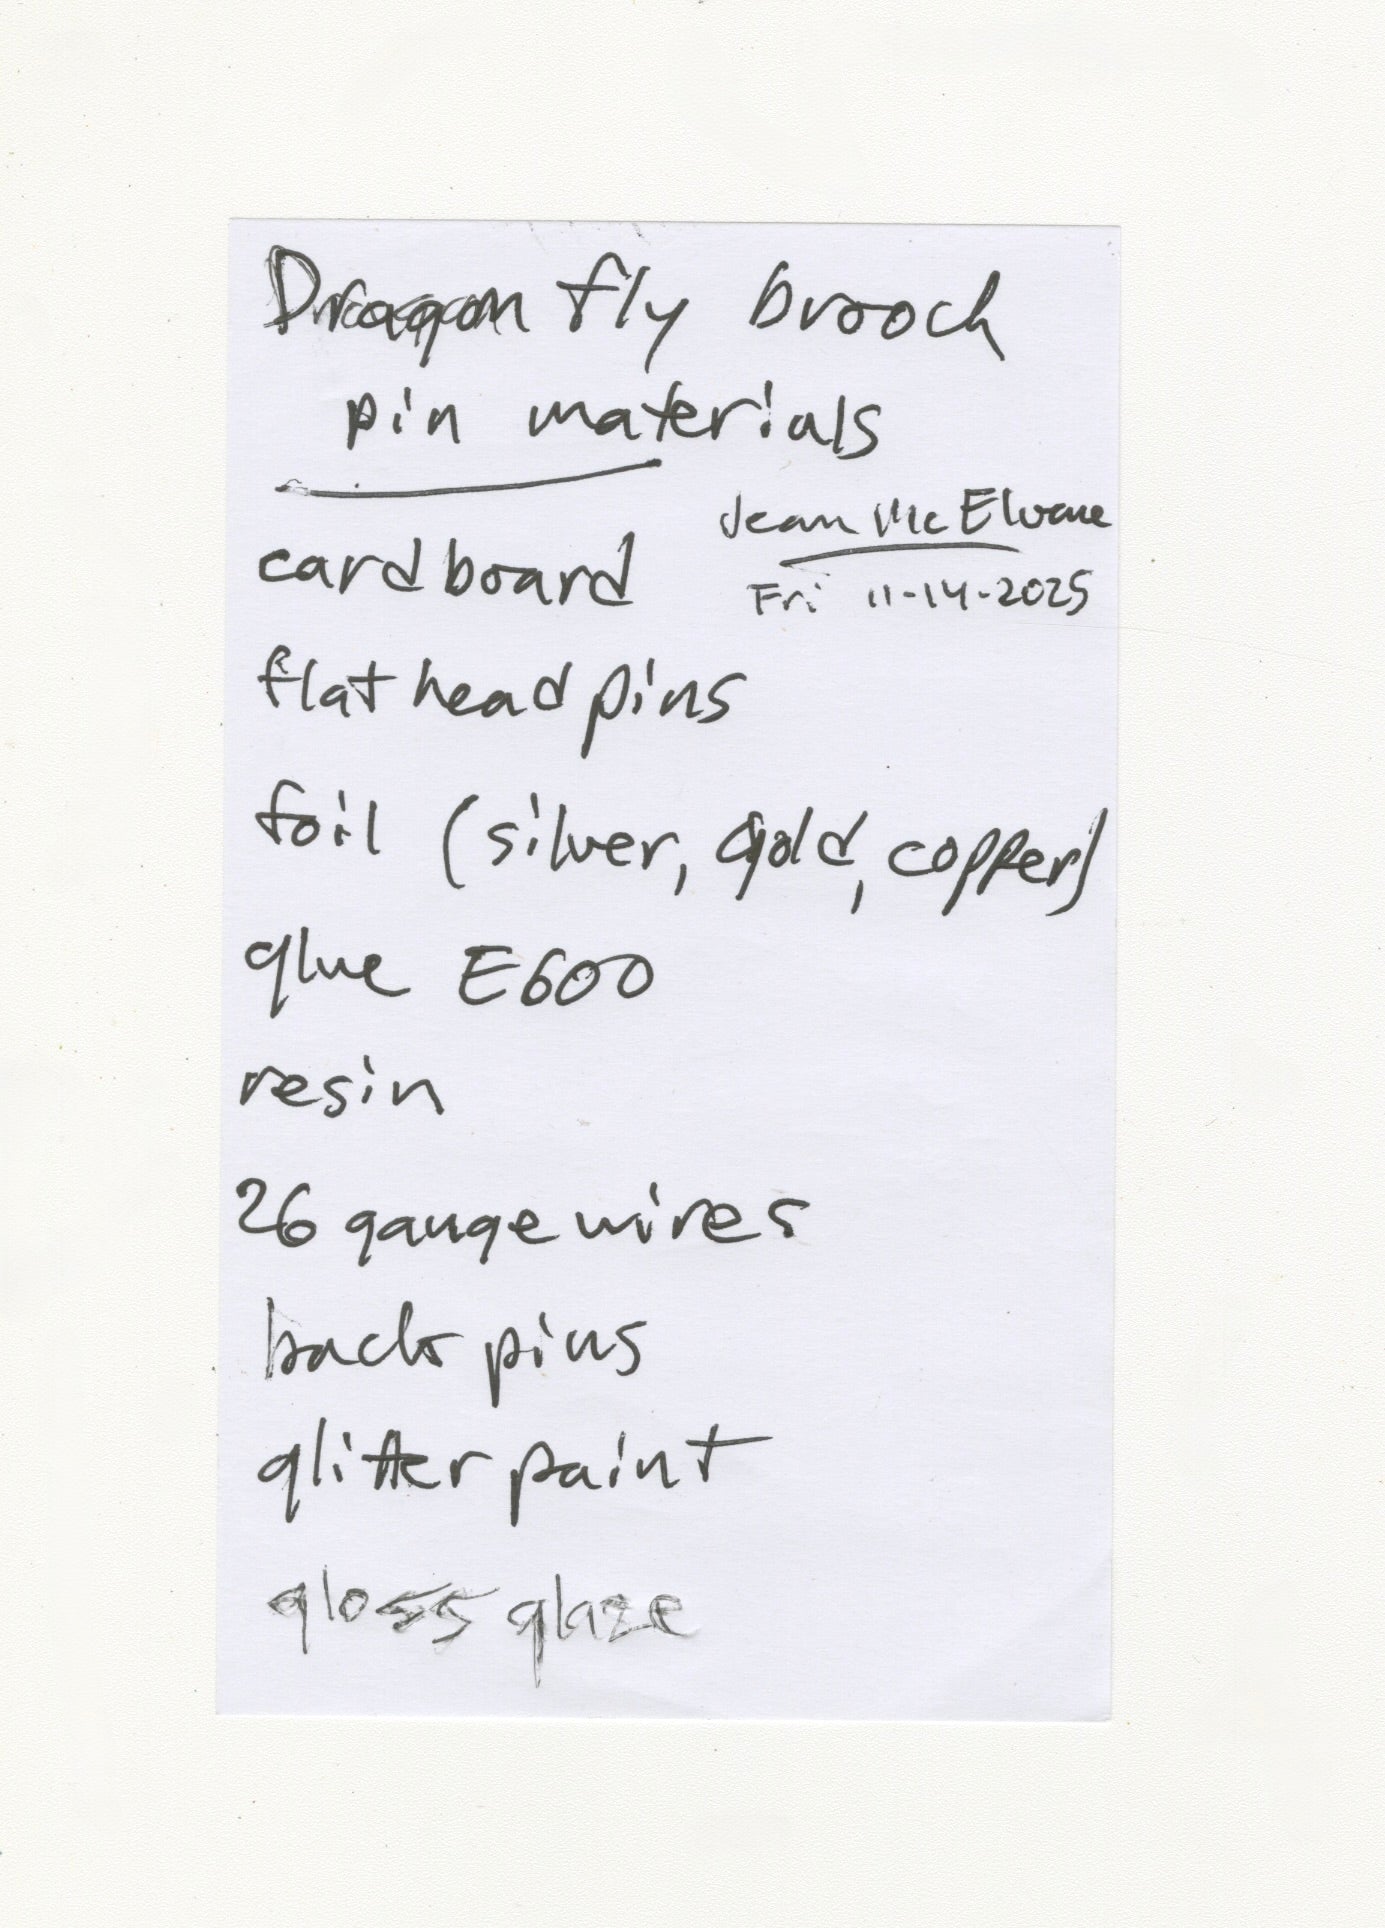 Dragon fly brooch
pin materials
Jean McElvane
Fri 11-14-2025
cardboard
flat head pins
foil (silver, gold, copper)
glue E600
resin
26 gauge wires
back pins
glitter paint
gloss glaze